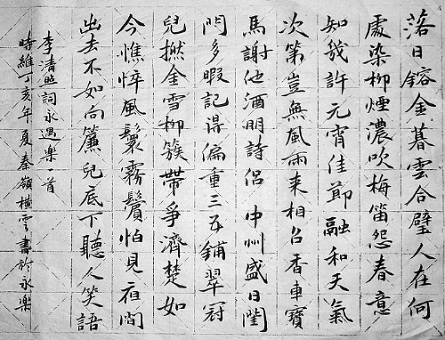 落日鎔金暮雲合璧人在何
處染柳煙濃吹梅笛怨春意
知幾許元宵佳節融和天氣
次第豈無風雨来相召香車寶
馬謝他酒朋詩侶 中州盛日閨
門多暇記得偏重三五鋪翠冠
兒撚金雪柳簇帶爭濟楚如
今憔悴風鬟霧鬢怕見夜間
出去不如向簾兒底下聽人笑語
李清照詞永遇樂一首
時維丁亥年夏秦嶺橫雲書於永樂